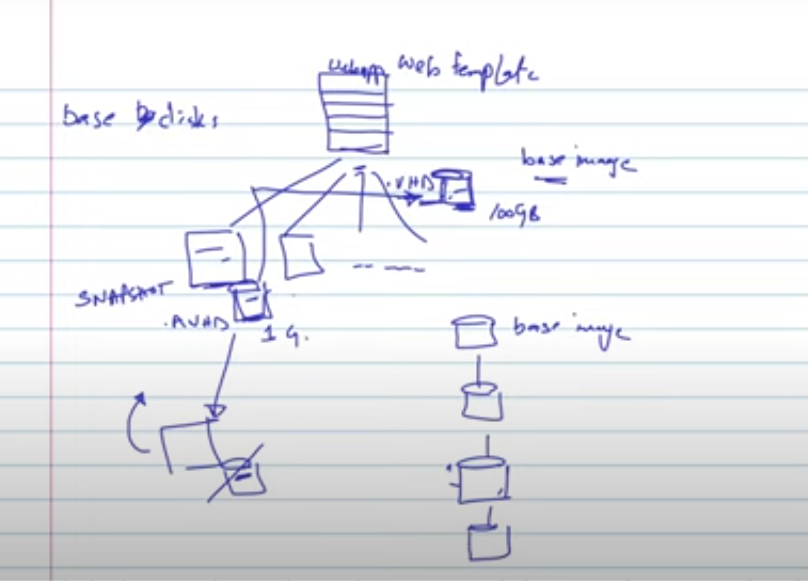 webapp web template
base disks
base image
.VHD
100GB
SNAPSHOT
.AVHD
1 G.
base image